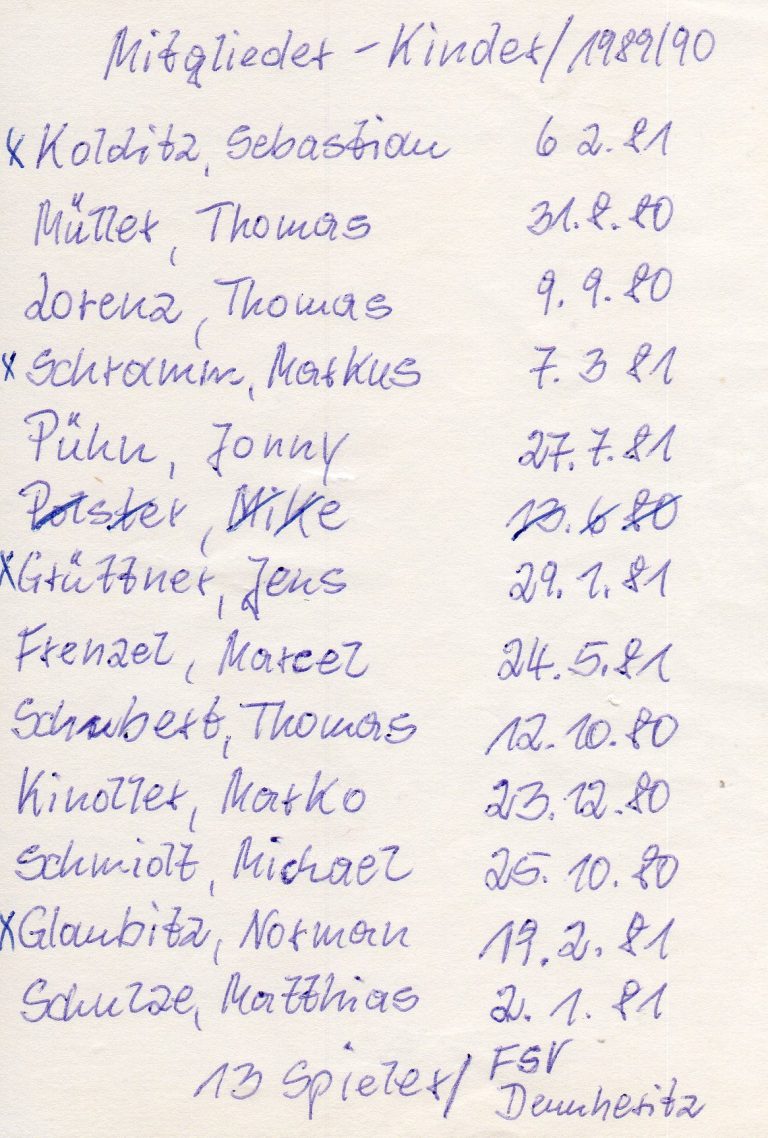 Mitglieder - Kinder / 1989/90
x Kolditz, Sebastian 6 2. 81
Müller, Thomas 31. 8. 80
Lorenz, Thomas 9. 9. 80
x Schramm, Markus 7. 3 81
Pühn, Jonny 27. 7. 81
Polster, Mike 13. 6 80
x Grüttner, Jens 29. 1. 81
Frenzel, Marcel 24. 5. 81
Schubert, Thomas 12. 10. 80
Kindler, Marko 23. 12. 80
Schmidt, Michael 25. 10. 80
x Glaubitz, Norman 19. 2. 81
Schulze, Matthias 2. 1. 81
13 Spieler / FSV
Dennheritz